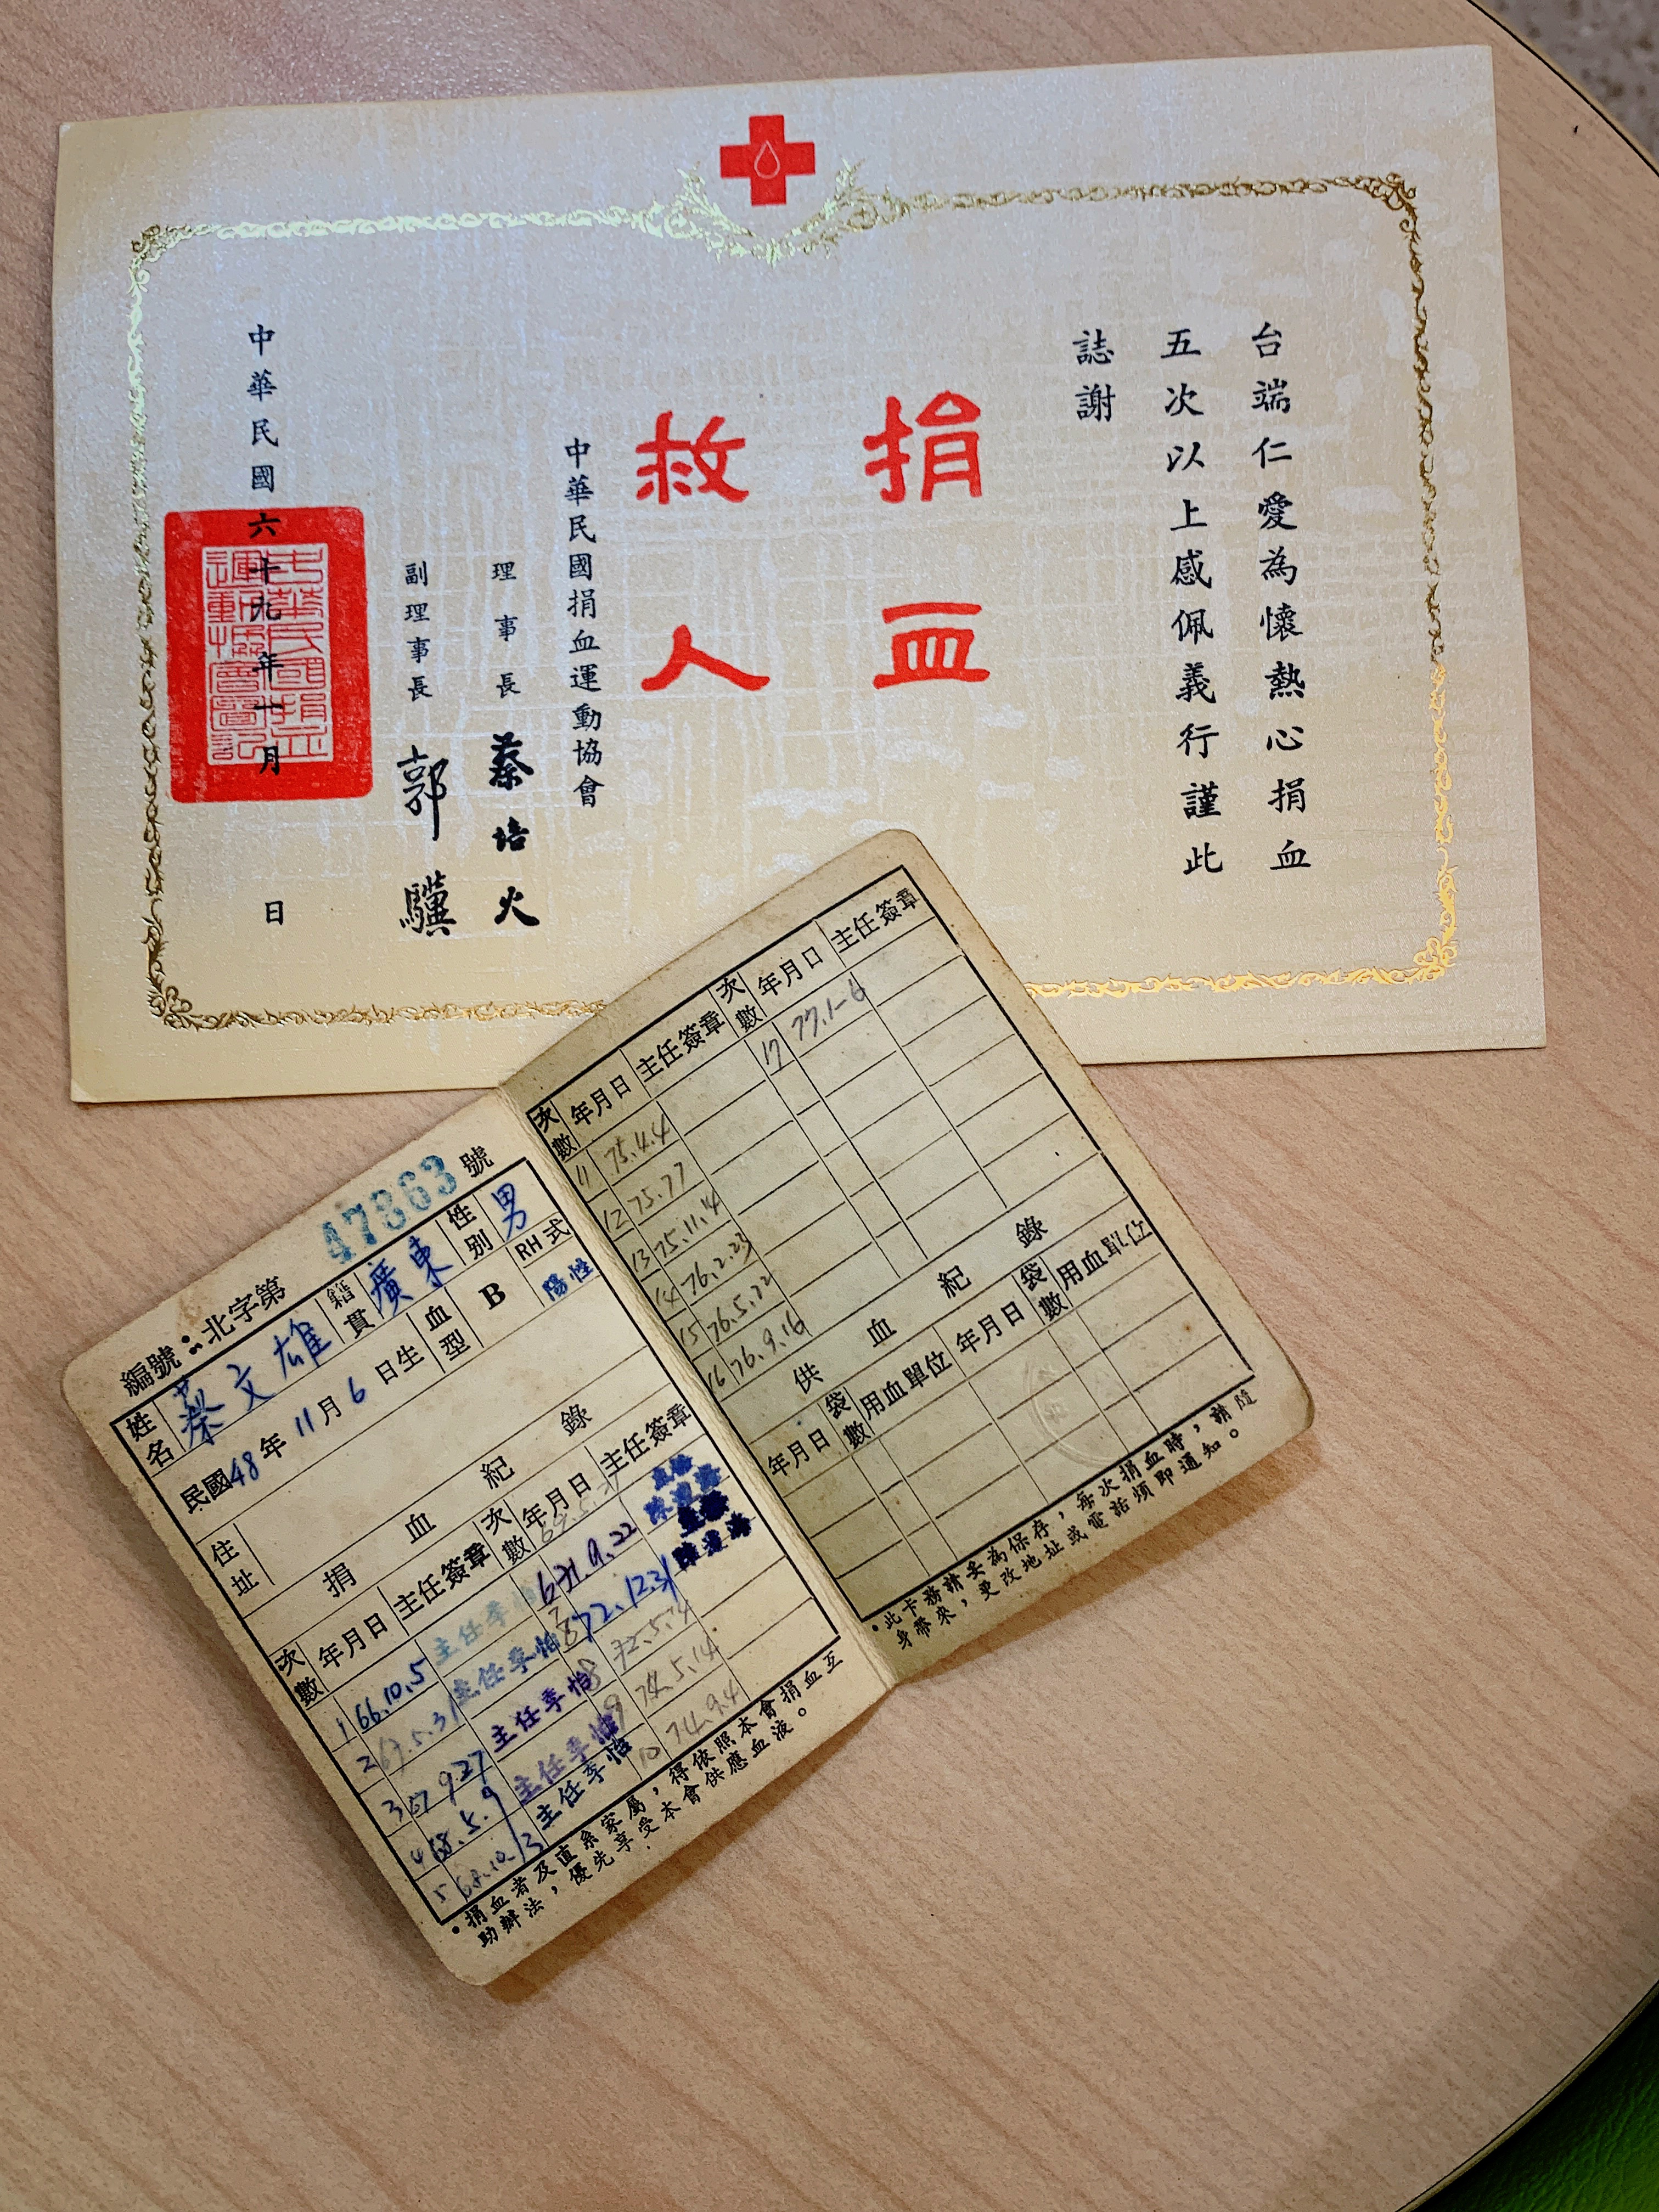 台端仁愛為懷熱心捐血
五次以上感佩義行謹此
誌謝
捐血
救人
中華民國捐血運動協會
理事長 蔡培火
副理事長 郭驥
中華民國六十九年十月 日
編號：北字第47863號
姓名 蔡文雄 籍貫 廣東 性別 男
民國48年11月6日生 血型 B RH式 陽性
住址
捐血紀錄
次數 年月日 主任簽章 次數 年月日 主任簽章
1 66.10.5 主任李怡
2 67.5.31 主任李怡
3 67 9.27 主任李怡
4 68.5.9 主任李怡
5 68.10.13 主任李怡
6 71.9.22
72.12.31
8
9 74.5.14
10 74.9.4
•捐血者及直系家屬，得依照本會捐血互
助辦法，優先享受本會供應血液。
次數 年月日 主任簽章 次數 年月日 主任簽章
11 75.4.4
12 75.7.7
13 75.11.14
14 76.2.23
15 76.5.22
16 76.9.16
17 77.1-6
供血紀錄
年月日 袋數 用血單位 年月日 袋數 用血單位
•此卡務請妥為保存，每次捐血時，請隨
身帶來，更改地址或電話煩即通知。